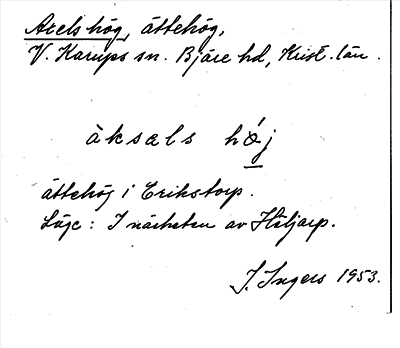 Axels hög, ättehög,
V. Karups sn. Bjäre hd, Krist. län.
àksæls hǿj
ättehög i Erikstorp.
Läge: I närheten av Hiljarp.
J. Ingers 1953.